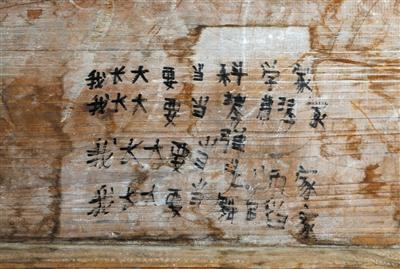 我长大要当科学家
我长大要当
我长大要当
我长大要当舞蹈家